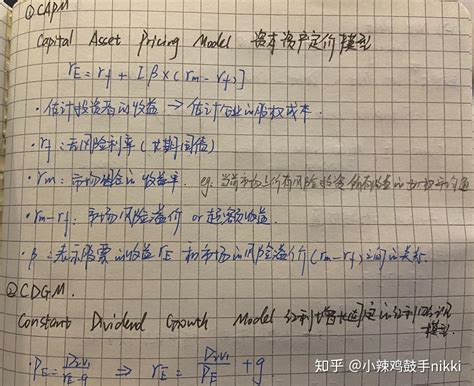 ①CAPM
Capital Asset Pricing Model 资本资产定价模型
rE = rf + [β × (rm - rf)]
· 估计投资者的收益 → 估计企业的股权成本.
· rf: 无风险利率 (长期国债)
· rm: 市场组合的收益率. eg: 当前市场上所有风险投资
· rm-rf: 市场风险溢价 or 超额收益.
· β: 表示股票的收益 rE 和市场的风险溢价 (rm-rf) 之间的关系.
②CDGM.
Constant Dividend Growth Model 红利增长固定的红利 模型
· PE = Div1 / rE-g ⇒ rE = Div1 / PE + g
知乎 @小辣鸡鼓手nikki